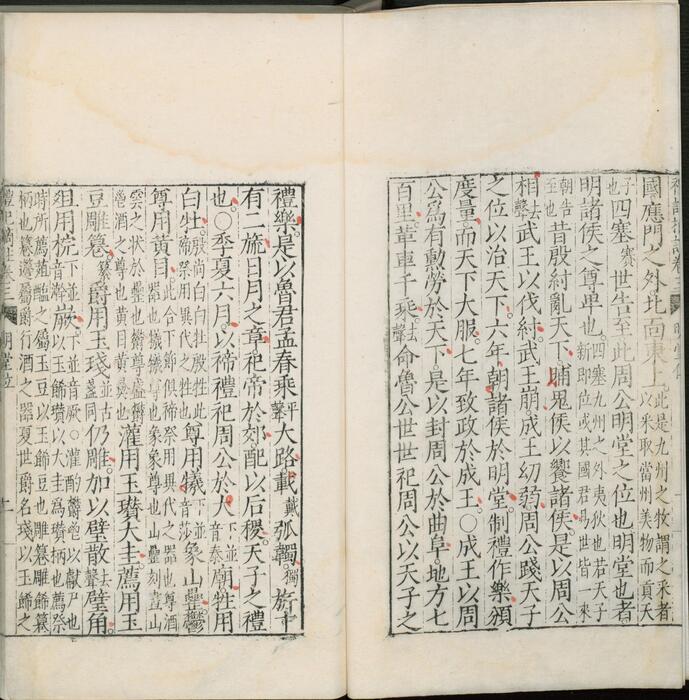 國應門之外北面東上。此是九州之牧謂之采者以采取當州美物而貢天
子也四塞賽世告至此周公明堂之位也明堂也者
明諸侯之尊卑也四塞九州之外夷狄也若天子新即位或其國君易世皆一來
朝告至也昔殷紂亂天下脯鬼侯以饗諸侯是以周公
相去聲武王以伐紂武王崩成王幼弱周公踐天子
之位以治天下六年朝諸侯於明堂制禮作樂頒
度量而天下大服七年致政於成王○成王以周
公為有勳勞於天下是以封周公於曲阜地方七
百里革車千乘去聲命魯公世世祀周公以天子之
禮樂是以魯君孟春乘平聲大路載戴弧韣獨旂十
有二旒日月之章祀帝於郊配以后稷天子之禮
也○季夏六月以禘禮祀周公於大下並音泰廟牲用
白牡殷尚白白牡殷牲也此禘祭用異代之牲也尊用犧下並音莎象山罍鬱
尊用黃目此合下節俱禘祭用異代之器也尊酒器也犧犧尊也象象尊也山罍刻畫山
雲之狀於罍也鬱尊盛鬱鬯酒之尊也黃目黃彝也灌用玉瓚大圭薦用玉
豆雕篹爵用玉琖並古盞同仍雕加以璧散去聲璧角
俎用梡嶡下並音厥。灌酌鬱鬯以獻尸也以玉飾瓚以大圭為瓚柄也薦祭
時所薦葅醢之屬玉豆以玉飾豆也雕篹雕飾篹
柄也篹籩屬爵行酒之器夏世爵名琖以玉飾之
禮記摘註卷三 明堂位